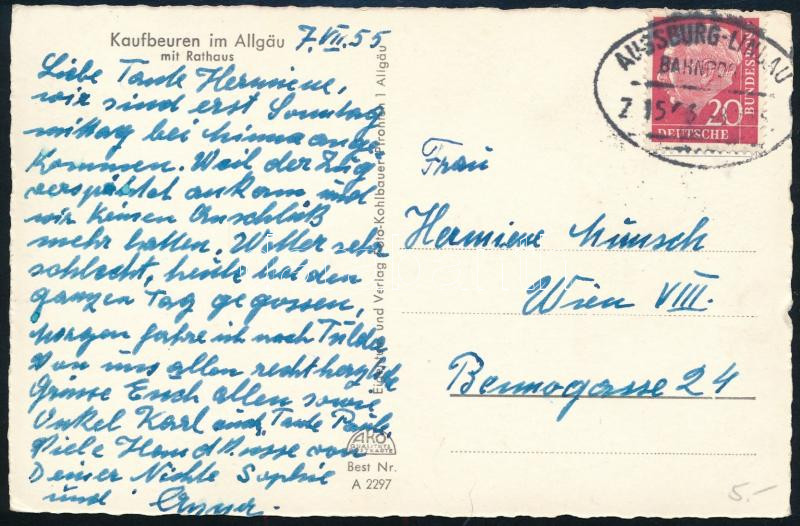 Kaufbeuren im Allgäu
mit Rathaus
7.VII.55
Liebe Tante Hermiene,
wir sind erst Sonntag
mittag bei Minna ange
kommen. Weil der Zug
verspätet ankam und
wir keinen Anschluß
mehr hatten. Wetter sehr
schlecht, heute hat den
ganzen Tag gegossen,
morgen fahre ich nach Fulda
Von uns allen recht herzliche
Grüsse Euch allen sowie
Onkel Karl und Tante Paula,
Viele Handküsse von
Deiner Nichte Sophie
und Anna.
und Verlag Foto-Kohlbauer Pfronten / Allgäu
AKO
QUALITÄTS
POSTKARTE
Best Nr.
A 2297
AUGSBURG-LINDAU
BAHNPOST
Z.
20
DEUTSCHE
BUNDESPOST
Frau
Hermiene Munsch
Wien VIII.
Bennogasse 24
5.-